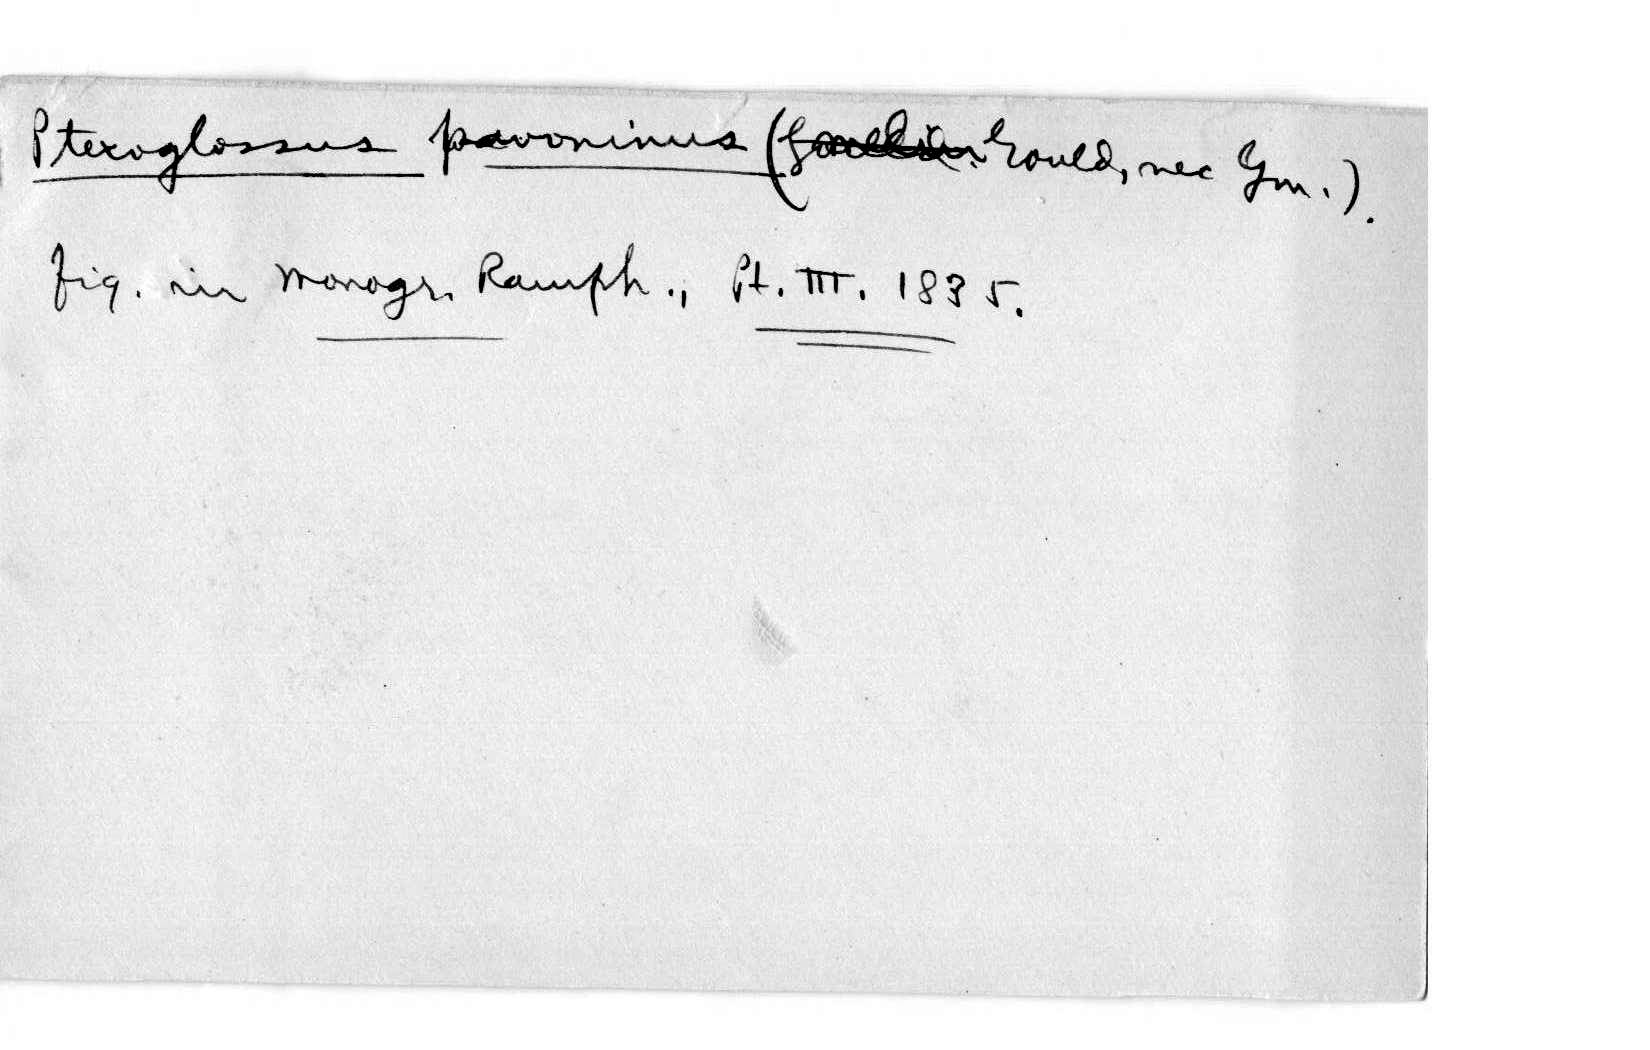 Pteroglossus pavoninus (Gould, nec Gm.).
fig. in Monogr. Ramph., Pt. III. 1835.